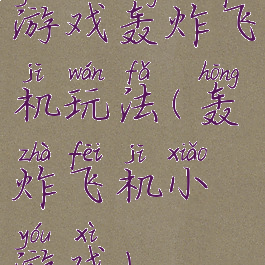 游戏轰炸飞
jī wán fǎ hōng
机玩法(轰
zhà fēi jī xiǎo
炸飞机小
yóu xì
游戏)